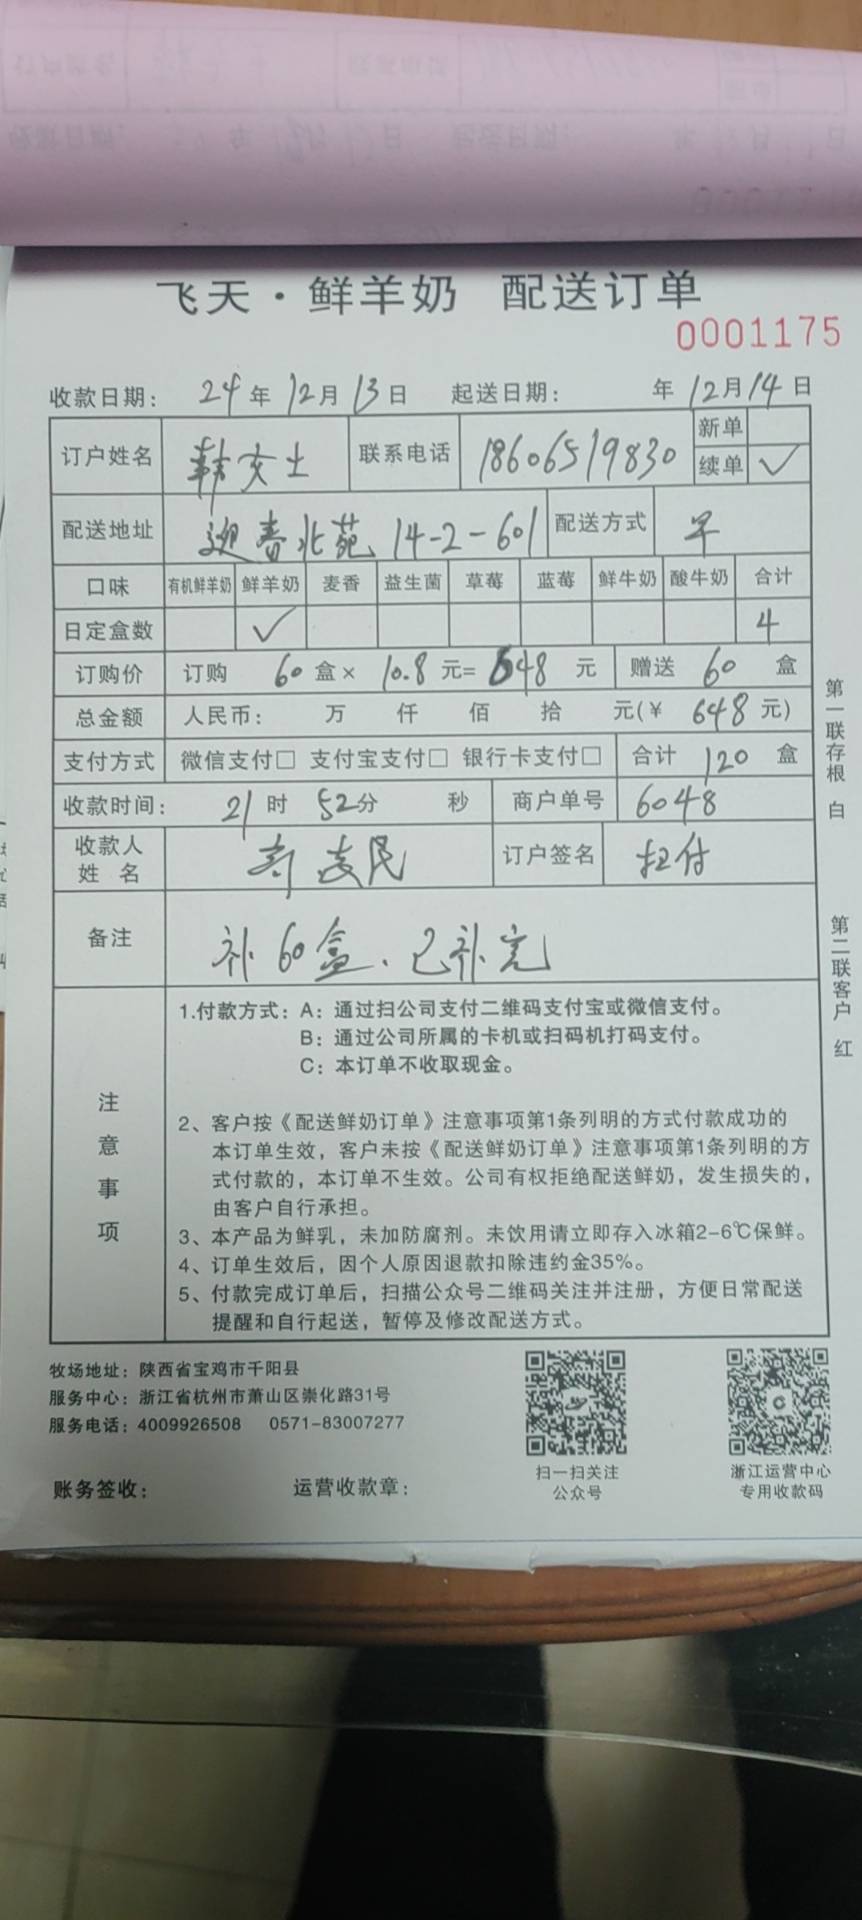 飞天·鲜羊奶 配送订单
0001175
收款日期: 24年12月13日 起送日期: 年12月14日
订户姓名 韩女士 联系电话 18606519830 新单
续单 ✓
配送地址 迎春北苑 14-2-601 配送方式 早
口味 有机鲜羊奶 鲜羊奶 麦香 益生菌 草莓 蓝莓 鲜牛奶 酸牛奶 合计
日定盒数 ✓ 4
订购价 订购 60 盒× 10.8 元= 648 元 赠送 60 盒
总金额 人民币: 万 仟 佰 拾 元(¥ 648 元)
支付方式 微信支付□ 支付宝支付□ 银行卡支付□ 合计 120 盒
收款时间: 21 时 52分 秒 商户单号 6048
收款人
姓 名 订户签名 扫付
备注 补60盒、已补完
注意事项
1.付款方式: A: 通过扫公司支付二维码支付宝或微信支付。
B: 通过公司所属的卡机或扫码机打码支付。
C: 本订单不收取现金。
2、客户按《配送鲜奶订单》注意事项第1条列明的方式付款成功的
本订单生效，客户未按《配送鲜奶订单》注意事项第1条列明的方
式付款的，本订单不生效。公司有权拒绝配送鲜奶，发生损失的，
由客户自行承担。
3、本产品为鲜乳，未加防腐剂。未饮用请立即存入冰箱2-6℃保鲜。
4、订单生效后，因个人原因退款扣除违约金35%。
5、付款完成订单后，扫描公众号二维码关注并注册，方便日常配送
提醒和自行起送，暂停及修改配送方式。
第一联存根 白
第二联客户 红
牧场地址: 陕西省宝鸡市千阳县
服务中心: 浙江省杭州市萧山区崇化路31号
服务电话: 4009926508 0571-83007277
扫一扫关注
公众号
浙江运营中心
专用收款码
账务签收: 运营收款章: